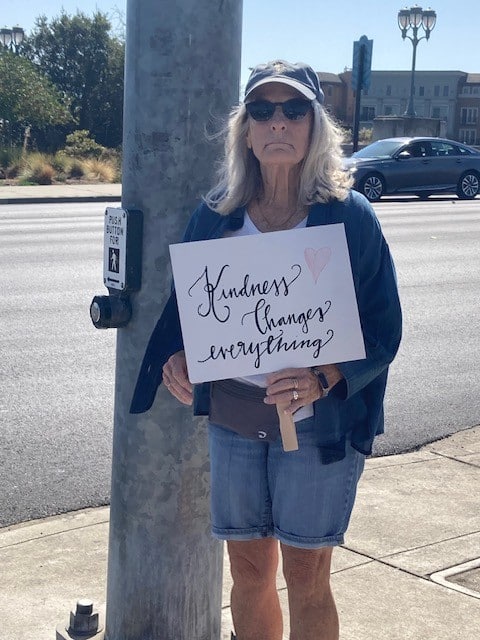 PUSH
BUTTON
FOR
Kindness
Changes
everything